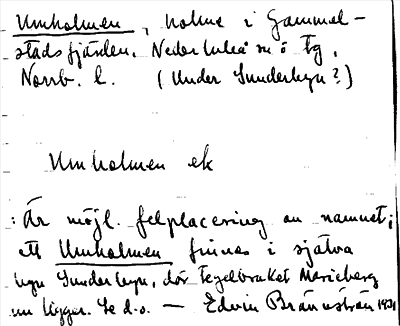 Umholmen, holme i Gammel-
stadsfjärden, Nederluleå sn o tg,
Norrb. l. (Under Sunderbyn?)
Umholmen ek
: Är möjl. felplacering av namnet;
ett Umholmen finnes i själva
byn Sunderbyn, där tegelbruket Marieberg
nu ligger. Se d.o. — Edvin Brännström 1931